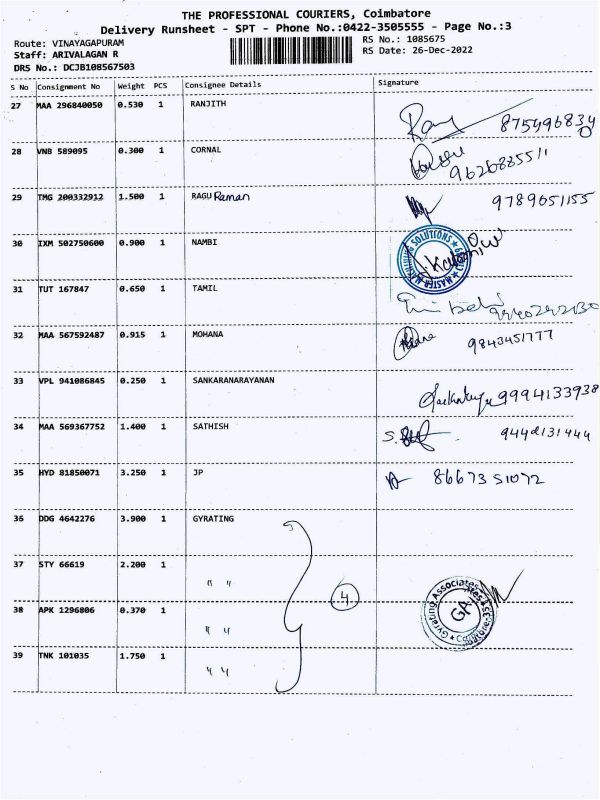 THE PROFESSIONAL COURIERS, Coimbatore
Delivery Runsheet - SPT - Phone No.:0422-3505555 - Page No.:3
Route: VINAYAGAPURAM
RS No.: 1085675
Staff: ARIVALAGAN R
RS Date: 26-Dec-2022
DRS No.: DCJB108567503
S No Consignment No Weight PCS Consignee Details Signature
27 MAA 296840050 0.530 1 RANJITH
28 VNB 589095 0.300 1 CORNAL 9626885511
29 TMG 200332912 1.500 1 RAGU Raman 9789651155
30 IXM 502750600 0.900 1 NAMBI
MASTER SOLUTIONS
31 TUT 167847 0.650 1 TAMIL
32 MAA 567592487 0.915 1 MOHANA 9843451777
33 VPL 941086845 0.250 1 SANKARANARAYANAN 9994133938
34 MAA 569367752 1.400 1 SATHISH
35 HYD 81850071 3.250 1 JP 8667351072
36 DDG 4642276 3.900 1 GYRATING
37 STY 66619 2.200 1 " "
4
Gyrating Associates
GA
38 APK 1296806 0.370 1 " "
39 TNK 101035 1.750 1 " "